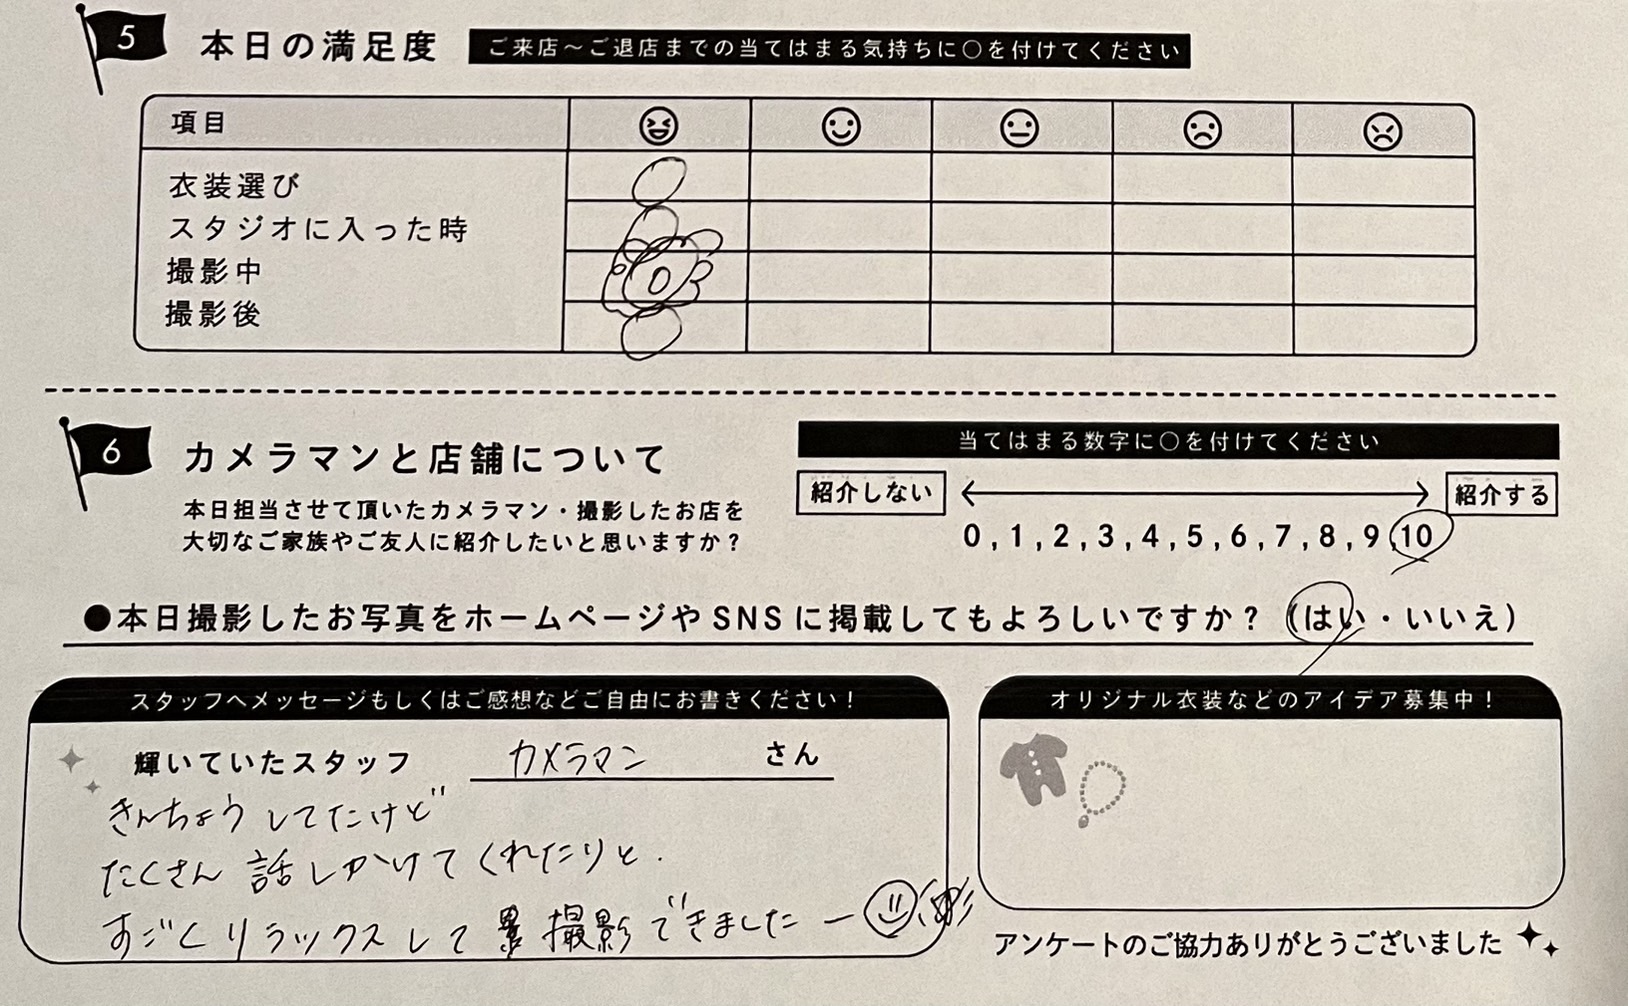 5 本日の満足度 ご来店～ご退店までの当てはまる気持ちに○を付けてください
項目
衣装選び
スタジオに入った時
撮影中
撮影後
6 カメラマンと店舗について
本日担当させて頂いたカメラマン・撮影したお店を
大切なご家族やご友人に紹介したいと思いますか？
当てはまる数字に○を付けてください
紹介しない 紹介する
0,1,2,3,4,5,6,7,8,9,10
●本日撮影したお写真をホームページやSNSに掲載してもよろしいですか？（はい・いいえ）
スタッフへメッセージもしくはご感想などご自由にお書きください！
輝いていたスタッフ カメラマン さん
きんちょうしてたけど
たくさん話しかけてくれたりと.
すごくリラックスして撮影できましたー
オリジナル衣装などのアイデア募集中！
アンケートのご協力ありがとうございました